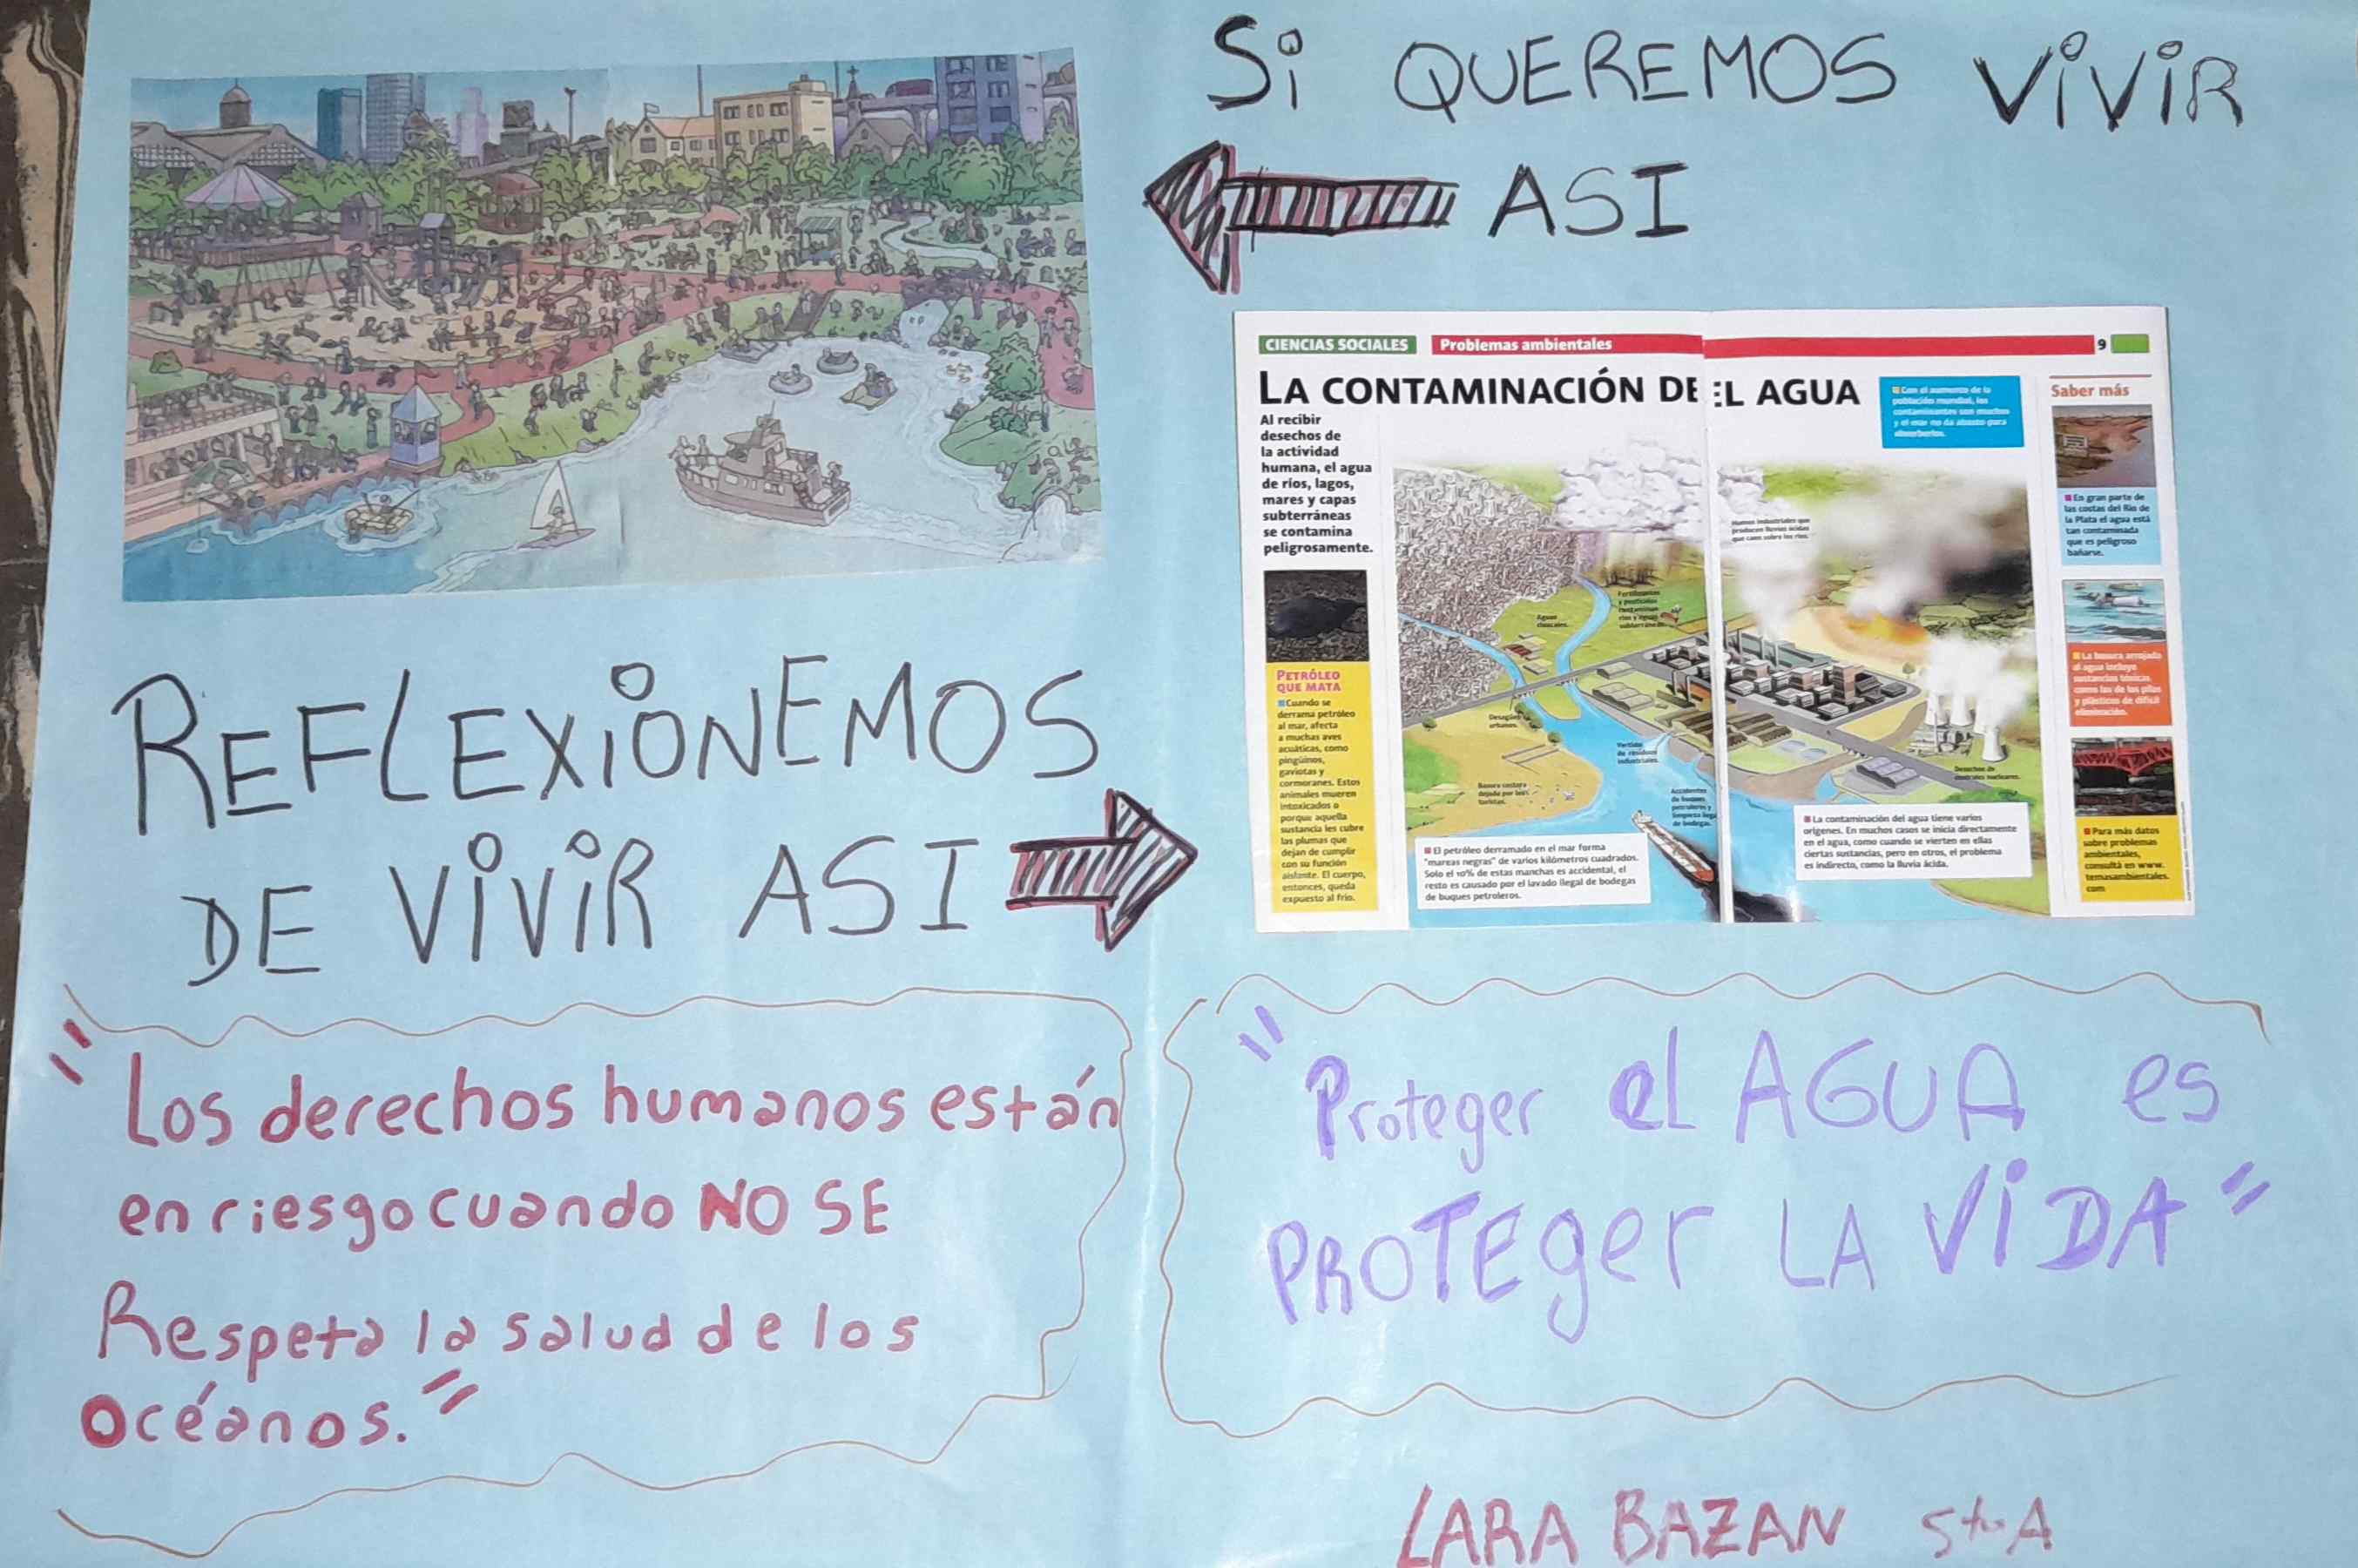 Si QUEREMOS ViViR
ASI
CIENCIAS SOCIALES Problemas ambientales 9
LA CONTAMINACIÓN DE EL AGUA
Al recibir
desechos de
la actividad
humana, el agua
de ríos, lagos,
mares y capas
subterráneas
se contamina
peligrosamente.
Con el aumento de la
población mundial, los
contaminantes son muchos
y el mar no da abasto para
absorberlos.
Saber más
En gran parte de
las costas del Río de
la Plata el agua está
tan contaminada
que es peligroso
bañarse.
La basura arrojada
al agua incluye
sustancias tóxicas,
como las de las pilas
y plásticos de difícil
eliminación.
Para más datos
sobre problemas
ambientales,
consultá en www.
temasambientales.
com
Humos industriales que
producen lluvias ácidas
que caen sobre los ríos.
Fertilizantes
y pesticidas
contaminan
ríos y aguas
subterráneas.
Aguas
cloacales.
Desagües
urbanos.
Vertido
de residuos
industriales.
Basura costera
dejada por los
turistas.
Accidentes
de buques
petroleros y
limpieza ilegal
de bodegas.
Desechos de
centrales nucleares.
PETRÓLEO
QUE MATA
Cuando se
derrama petróleo
al mar, afecta
a muchas aves
acuáticas, como
pingüinos,
gaviotas y
cormoranes. Estos
animales mueren
intoxicados o
porque aquella
sustancia les cubre
las plumas que
dejan de cumplir
con su función
aislante. El cuerpo,
entonces, queda
expuesto al frío.
El petróleo derramado en el mar forma
"mareas negras" de varios kilómetros cuadrados.
Solo el 10% de estas manchas es accidental, el
resto es causado por el lavado ilegal de bodegas
de buques petroleros.
La contaminación del agua tiene varios
orígenes. En muchos casos se inicia directamente
en el agua, como cuando se vierten en ellas
ciertas sustancias, pero en otros, el problema
es indirecto, como la lluvia ácida.
REFLEXiONEMOS
DE ViViR ASI
"Los derechos humanos están
en riesgo cuando NO SE
Respeta la salud de los
Océanos."
"Proteger el AGUA es
PROTEger LA ViDA"
LARA BAZAN 5to A